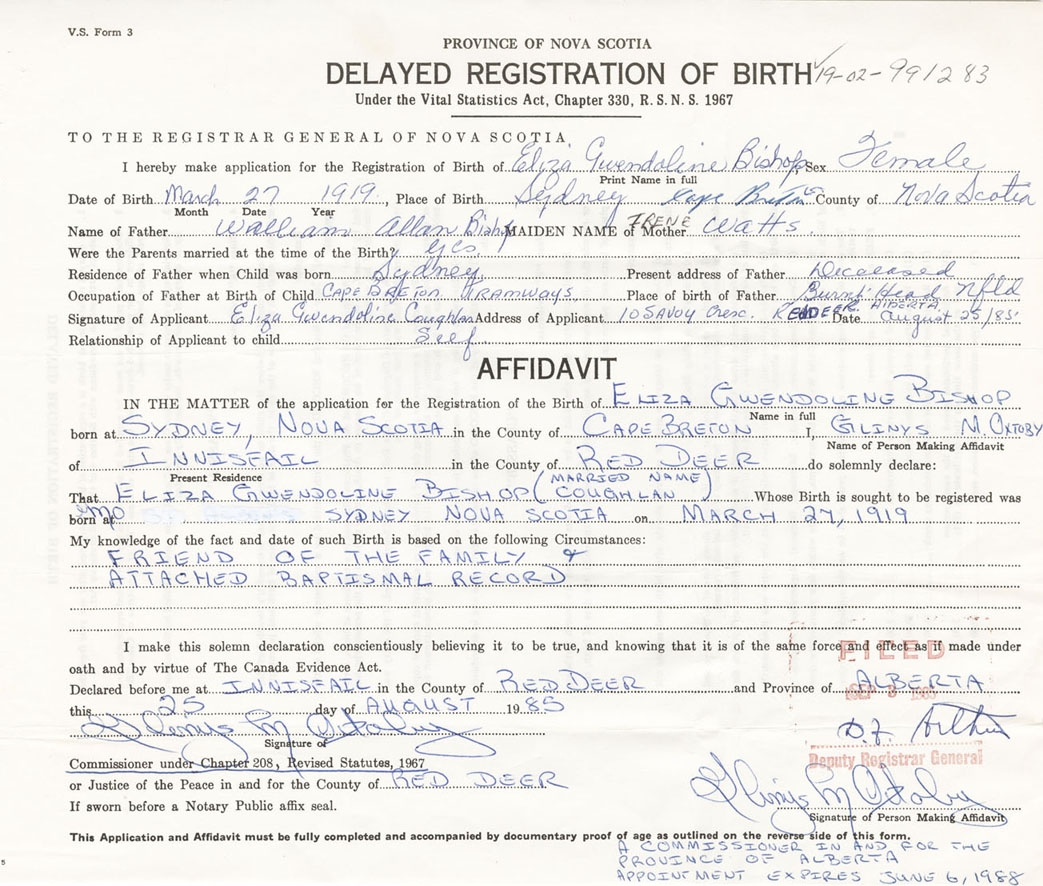 V.S. Form 3
PROVINCE OF NOVA SCOTIA
DELAYED REGISTRATION OF BIRTH 19-02-991283
Under the Vital Statistics Act, Chapter 330, R.S.N.S. 1967
TO THE REGISTRAR GENERAL OF NOVA SCOTIA
I hereby make application for the Registration of Birth of Eliza Gwendoline Bishop, Sex Female
Print Name in full
Date of Birth March 27 1919, Place of Birth Sydney Cape Breton County of Nova Scotia
Month Date Year
Name of Father William Allan Bishop MAIDEN NAME of Mother IRENE Watts.
Were the Parents married at the time of the Birth? Yes.
Residence of Father when Child was born Sydney. Present address of Father Deceased
Occupation of Father at Birth of Child CAPE BRETON TRAMWAYS Place of birth of Father Burnt Head Nfld
Signature of Applicant Eliza Gwendoline Coughlan Address of Applicant 10 SAVOY Cresc. RED DEER ALBERTA Date August 25/85
Relationship of Applicant to child Self
AFFIDAVIT
IN THE MATTER of the application for the Registration of the Birth of ELIZA GWENDOLINE BISHOP
Name in full
born at SYDNEY, NOVA SCOTIA in the County of CAPE BRETON I, GLINYS M. OXTOBY
Name of Person Making Affidavit
of INNISFAIL in the County of RED DEER do solemnly declare:
Present Residence
That ELIZA GWENDOLINE BISHOP (MARRIED NAME COUGHLAN) Whose Birth is sought to be registered was
GMO
born at SYDNEY NOVA SCOTIA on MARCH 27, 1919
My knowledge of the fact and date of such Birth is based on the following Circumstances:
FRIEND OF THE FAMILY &
ATTACHED BAPTISMAL RECORD
I make this solemn declaration conscientiously believing it to be true, and knowing that it is of the same force and effect as if made under
FILED
oath and by virtue of The Canada Evidence Act.
Declared before me at INNISFAIL in the County of RED DEER and Province of ALBERTA
this 25 day of AUGUST 1985
SEP 3 1985
Glinys M Oxtoby
D.F. Arthur
Signature of
Deputy Registrar General
Commissioner under Chapter 208, Revised Statutes, 1967
or Justice of the Peace in and for the County of RED DEER
Glinys M Oxtoby
If sworn before a Notary Public affix seal.
Signature of Person Making Affidavit
This Application and Affidavit must be fully completed and accompanied by documentary proof of age as outlined on the reverse side of this form.
A COMMISSIONER IN AND FOR THE
PROVINCE OF ALBERTA
APPOINTMENT EXPIRES JUNE 6, 1988
5